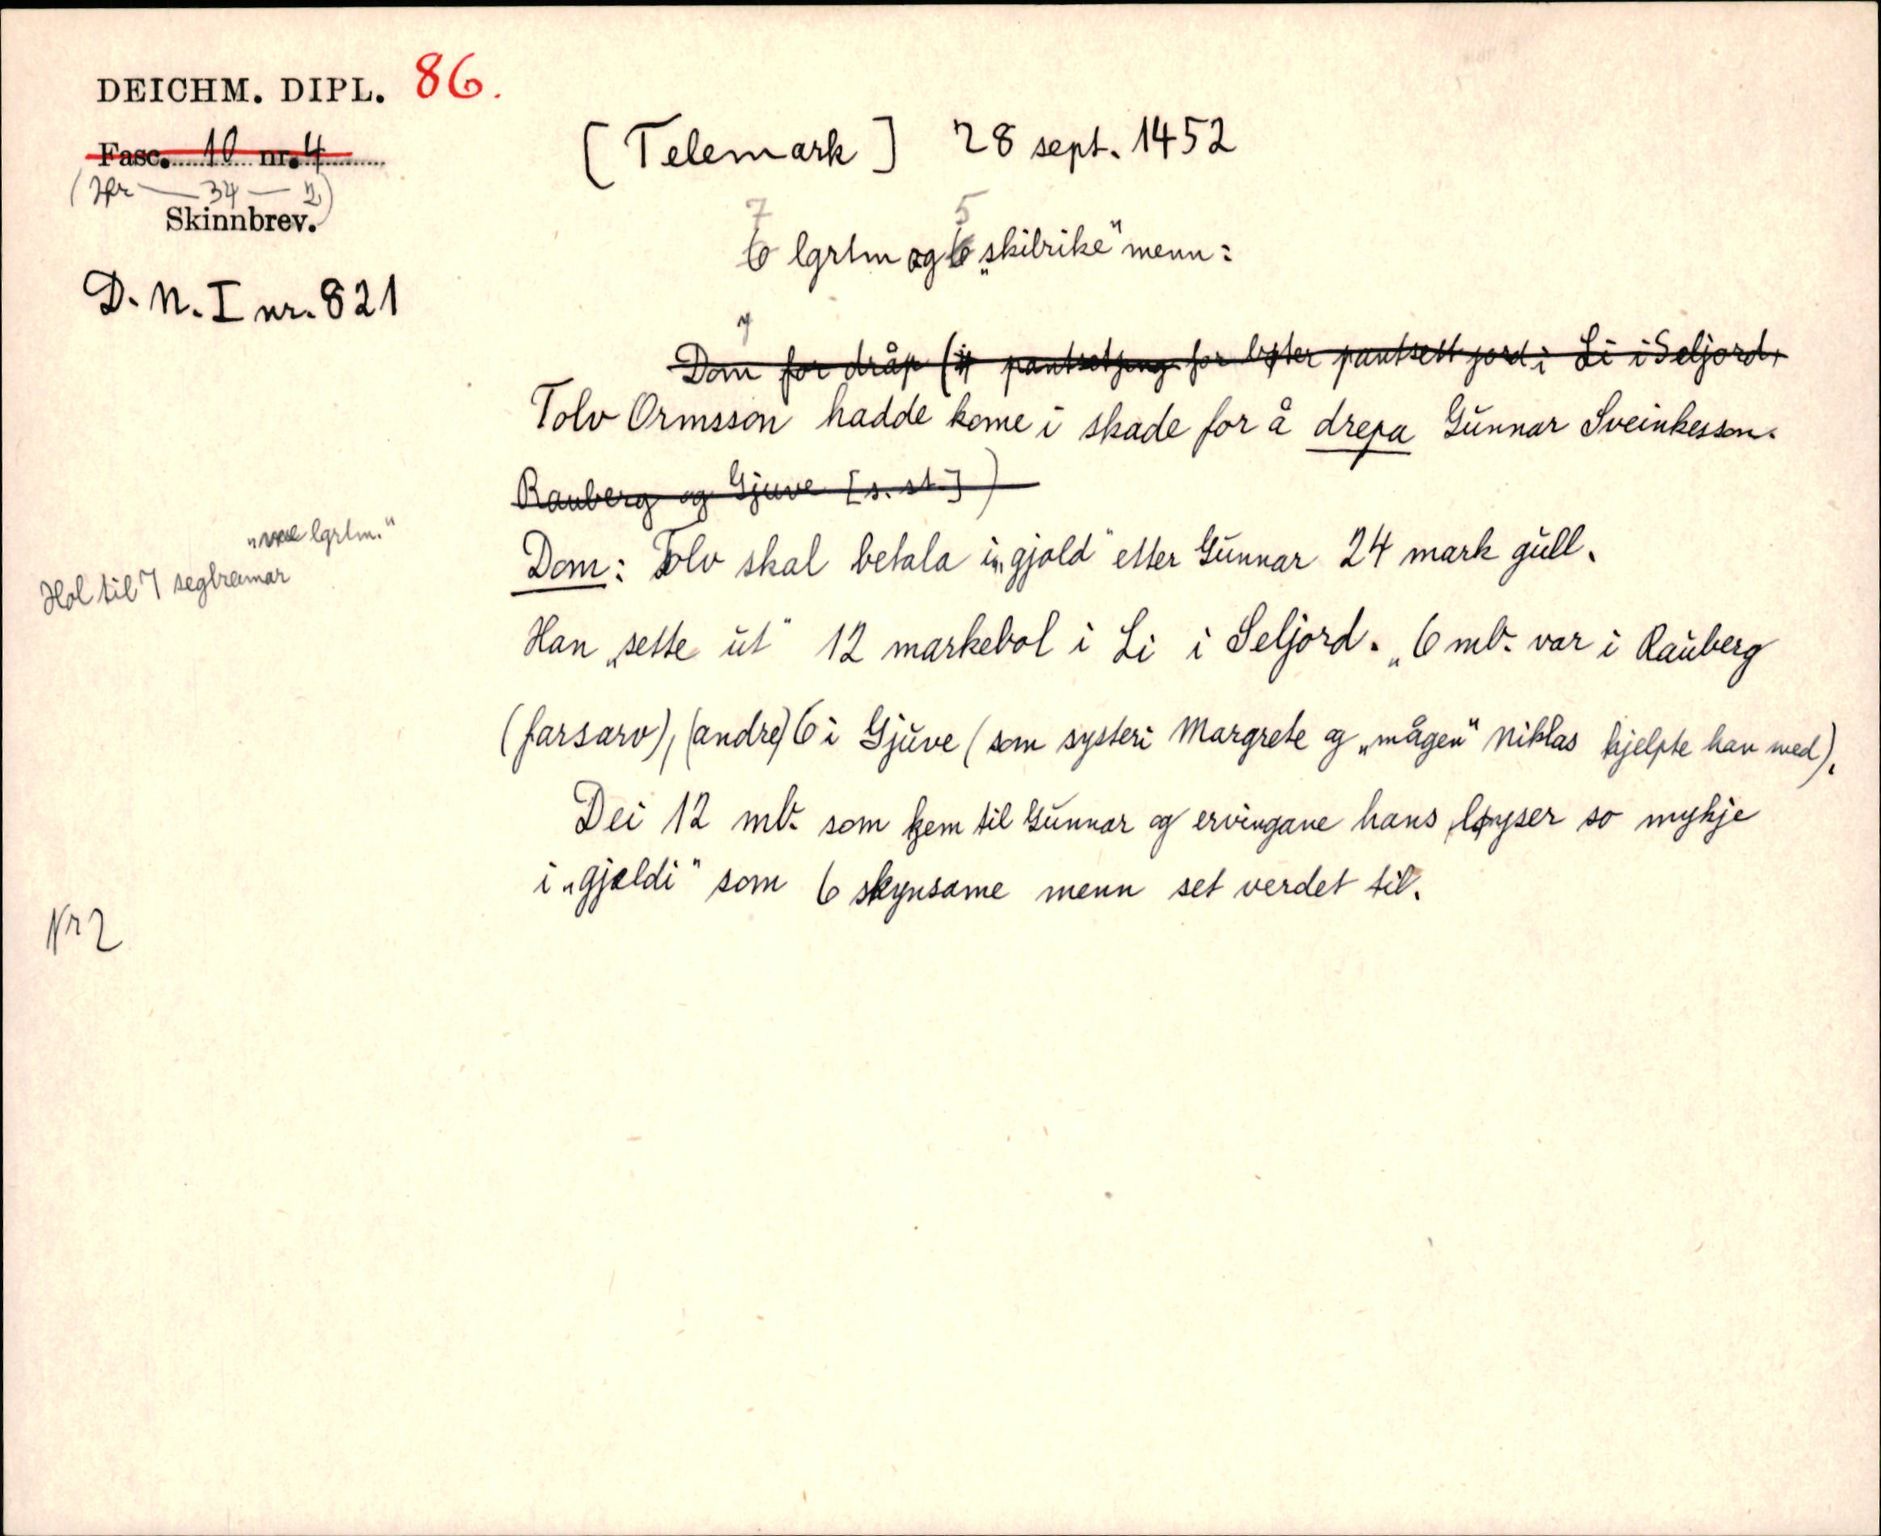 DEICHM. DIPL. 86.
Fasc. 10 nr. 4
34 — 2)
Skinnbrev.
D. N. I nr. 821
[Telemark] 28 sept. 1452
7 5
6 lgrtm og 6 „skilrike" menn:
Dom for dråp ( pantsetjing for bøter pantsett jord i Li i Seljord,
Tolv Ormsson hadde kome i skade for å drepa Gunnar Sveinkesson.
Rauberg og Gjuve [s. st.])
Dom: Tolv skal betala i „gjold" etter Gunnar 24 mark gull.
Han „sette ut" 12 markebol i Li i Seljord. „6 mb. var i Rauberg
(farsarv), (andre) 6 i Gjuve (som systeri Margrete og „mågen" Niklas hjelpte han med).
Dei 12 mb. som kem til Gunnar og ervingane hans, løyser so mykje
i „gjeldi" som 6 skynsame menn set verdet til.
lgrtm."
Hol til 7 seglreimar
Nr 2